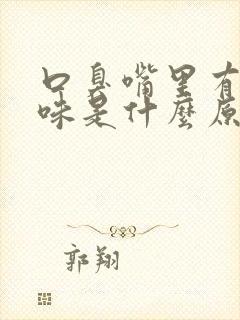 口臭嘴里有
味是什麼原
郭翔